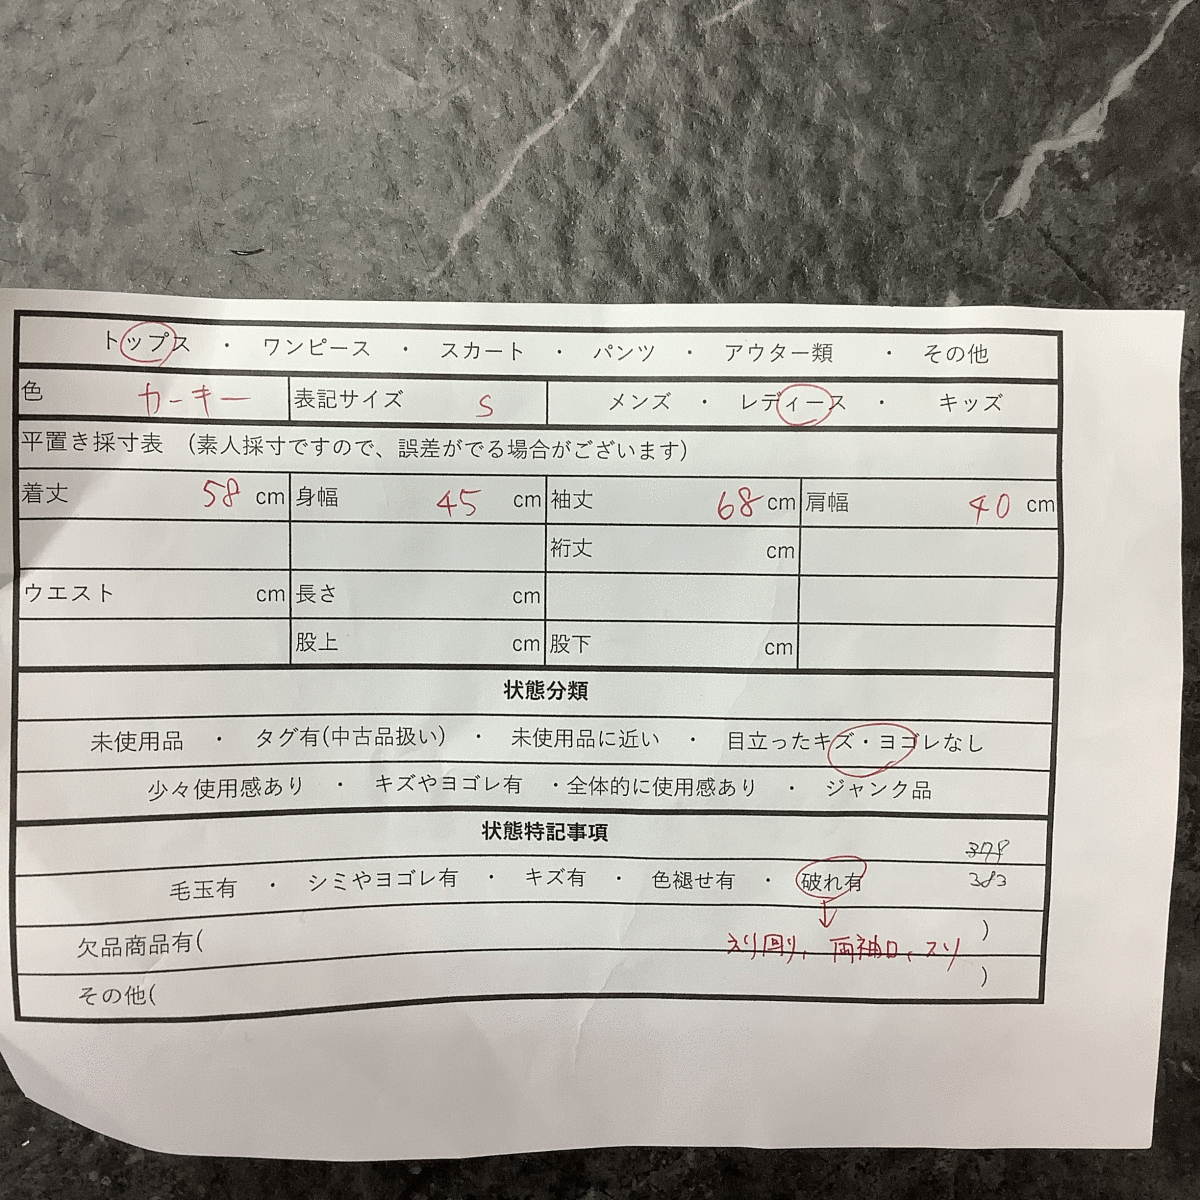 トップス ・ ワンピース ・ スカート ・ パンツ ・ アウター類 ・ その他
色 カーキー 表記サイズ S メンズ ・ レディース ・ キッズ
平置き採寸表 (素人採寸ですので、誤差がでる場合がございます)
着丈 58 cm 身幅 45 cm 袖丈 68 cm 肩幅 40 cm
裄丈 cm
ウエスト cm 長さ cm
股上 cm 股下 cm
状態分類
未使用品 ・ タグ有(中古品扱い) ・ 未使用品に近い ・ 目立ったキズ・ヨゴレなし
少々使用感あり ・ キズやヨゴレ有 ・全体的に使用感あり ・ ジャンク品
状態特記事項
毛玉有 ・ シミやヨゴレ有 ・ キズ有 ・ 色褪せ有 ・ 破れ有 383
欠品商品有( )
えり回り、両袖口、スソ
その他( )